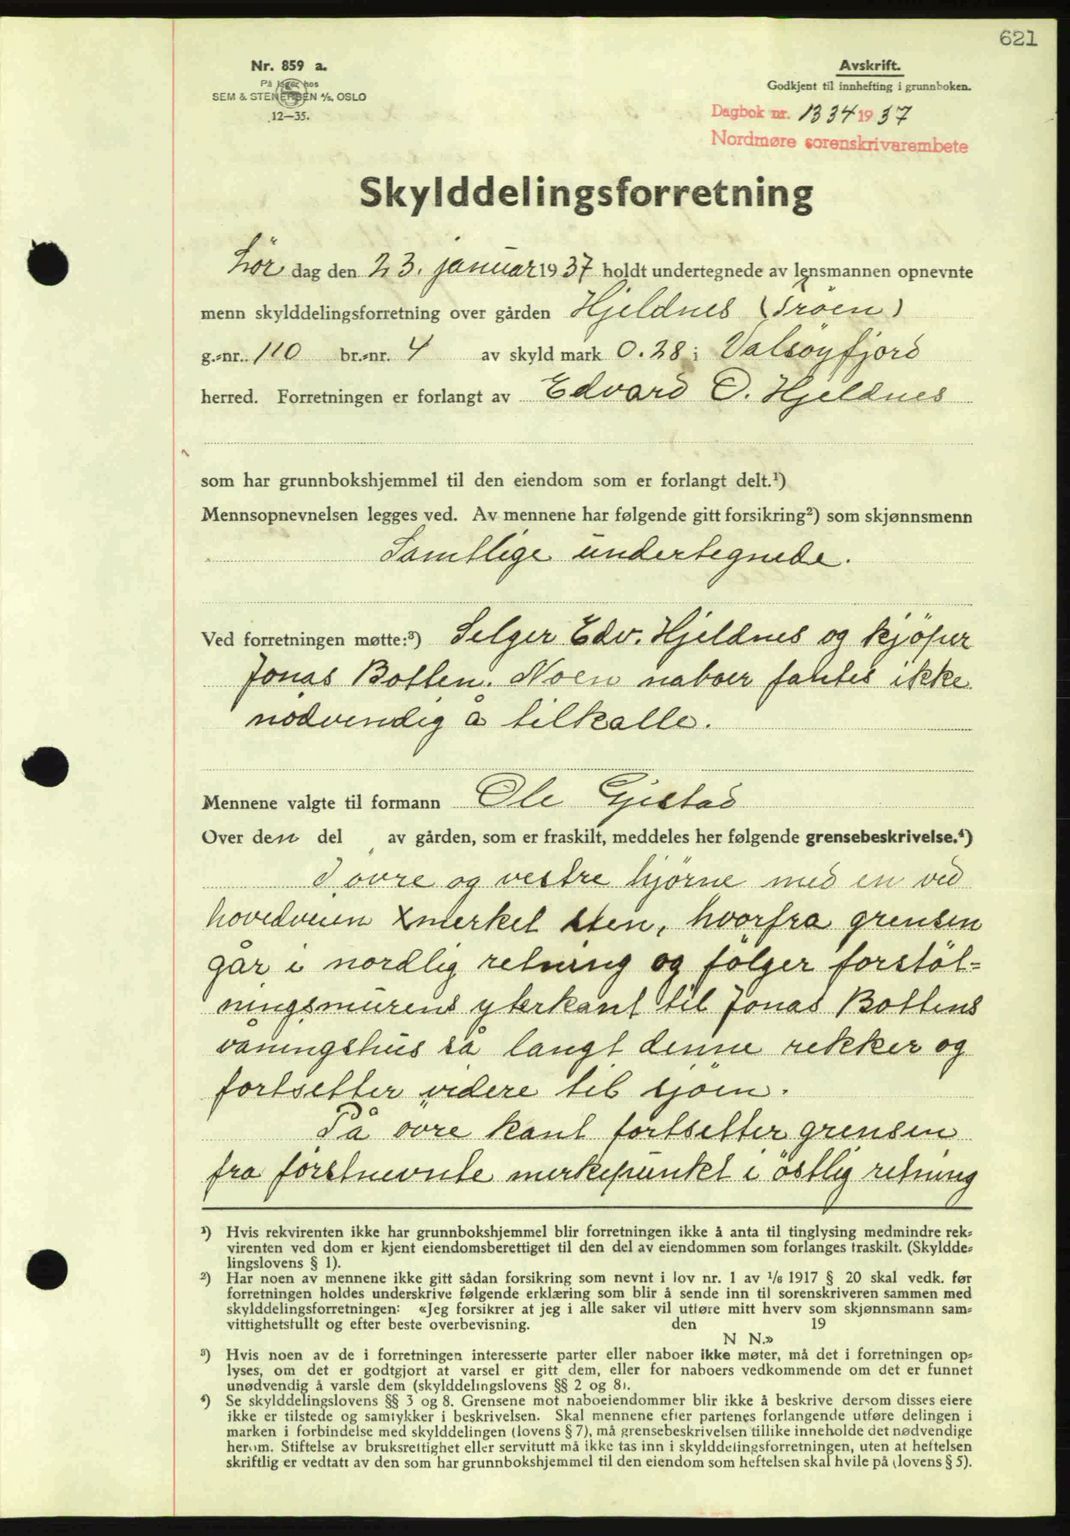 621
Nr. 859 a.
På lager hos
SEM & STENERSEN A/S, OSLO
12—35.
Avskrift.
Godkjent til innhefting i grunnboken.
Dagbok nr. 1334 1937
Nordmøre sorenskriverembete
Skylddelingsforretning
Lör dag den 23. januar 1937 holdt undertegnede av lensmannen opnevnte
menn skylddelingsforretning over gården Hjeldnes (Tröen)
g.-nr. 110 br.-nr. 4 av skyld mark 0.28 i Valsöyfjord
herred. Forretningen er forlangt av Edvard O. Hjeldnes
som har grunnbokshjemmel til den eiendom som er forlangt delt.¹)
Mennsopnevnelsen legges ved. Av mennene har følgende gitt forsikring²) som skjønnsmenn
Samtlige undertegnede.
Ved forretningen møtte:³) Selger Edv. Hjeldnes og kjöper
Jonas Botten. Noen naboer fantes ikke
nödvendig å tilkalle.
Mennene valgte til formann Ole Gjestad
Over den del av gården, som er fraskilt, meddeles her følgende grensebeskrivelse.⁴)
I övre og vestre hjörne med en ved
hovedveien x merket sten, hvorfra grensen
går i nordlig retning og fölger forstöt-
ningsmurens ytterkant til Jonas Bottens
våningshus så langt denne rekker og
fortsetter videre til sjöen.
På övre kant fortsetter grensen
fra förstnevnte merkepunkt i östlig retning
¹) Hvis rekvirenten ikke har grunnbokshjemmel blir forretningen ikke å anta til tinglysing medmindre rek-
virenten ved dom er kjent eiendomsberettiget til den del av eiendommen som forlanges fraskilt. (Skyldde-
lingslovens § 1).
²) Har noen av mennene ikke gitt sådan forsikring som nevnt i lov nr. 1 av 1/6 1917 § 20 skal vedk. før
forretningen holdes underskrive følgende erklæring som blir å sende inn til sorenskriveren sammen med
skylddelingsforretningen: «Jeg forsikrer at jeg i alle saker vil utføre mitt hverv som skjønnsmann sam-
vittighetsfullt og efter beste overbevisning. den 19
N N.»
³) Hvis noen av de i forretningen interesserte parter eller naboer ikke møter, må det i forretningen op-
lyses, om det er godtgjort at varsel er gitt dem, eller for naboers vedkommende om det er funnet
unødvendig å varsle dem (skylddelingslovens §§ 2 og 8).
⁴) Se skylddelingslovens §§ 3 og 8. Grensene mot naboeiendommer blir ikke å beskrive dersom disses eiere
ikke er tilstede og samtykker i beskrivelsen. Skal mennene efter partenes forlangende utføre delingen i
marken i forbindelse med skylddelingen (lovens § 7), må grensebeskrivelsen tillike inneholde det nødvendige
herom. Stiftelse av bruksrettighet eller servitutt må ikke tas inn i skylddelingsforretningen, uten at heftelsen
skriftlig er vedtatt av den som har grunnbokshjemmel til den eiendom som heftelsen skal hvile på (lovens § 5).